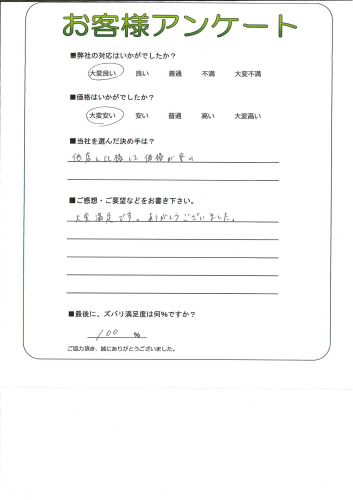 お客様アンケート
■弊社の対応はいかがでしたか?
大変良い 良い 普通 不満 大変不満
■価格はいかがでしたか?
大変安い 安い 普通 高い 大変高い
■当社を選んだ決め手は?
他店と比較して価格が安い
■ご感想・ご要望などをお書き下さい。
大変満足です。ありがとうございました。
■最後に、ズバリ満足度は何%ですか?
100 %
ご協力頂き、誠にありがとうございました。